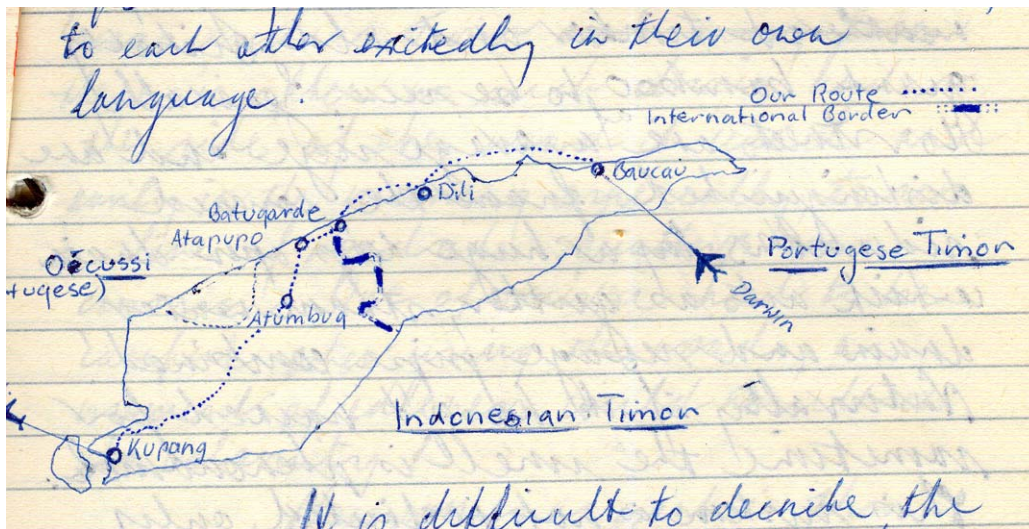 to each other excitedly in their own
language.
Our Route
International Border
Baucau
Dili
Batugarde
Atapupo
Oécussi
tugese)
Portugese Timor
Darwin
Atumbua
Indonesian Timor
Kupang
It is difficult to describe, the